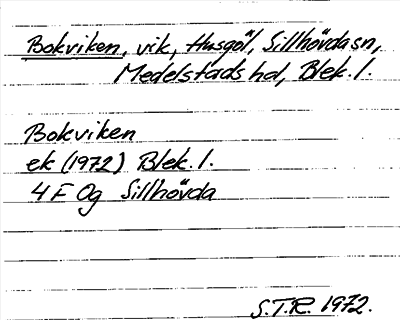 Bokviken, vik, Husgöl, Sillhövda sn,
Medelstads hd, Blek. l.
Bokviken
ek (1972) Blek. l.
4 F Og Sillhövda
S.T.R. 1972.